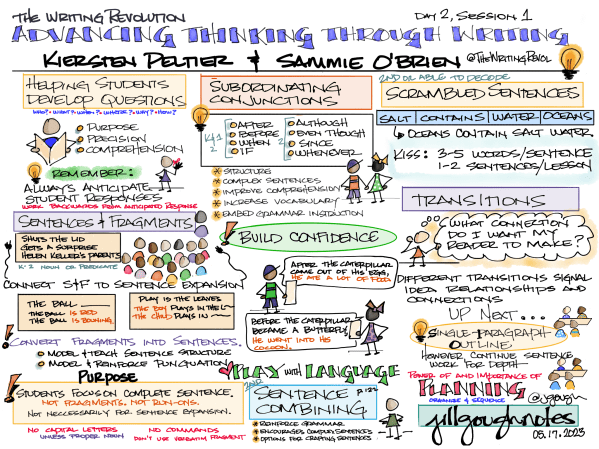 THE WRITING REVOLUTION
DAY 2, SESSION 1
ADVANCING THINKING THROUGH WRITING
KIERSTEN PELTIER & SAMMIE O'BRIEN @THEWRITINGREVOL
HELPING STUDENTS
DEVELOP QUESTIONS
WHO? WHAT? WHEN? WHERE? WHY? HOW?
PURPOSE
PRECISION
COMPREHENSION
REMEMBER:
ALWAYS ANTICIPATE
STUDENT RESPONSES
WORK BACKWARDS FROM ANTICIPATED RESPONSE
SENTENCES & FRAGMENTS
SHUTS THE LID
GETS A SURPRISE
HELEN KELLER'S PARENTS
K-2 NOUN OR PREDICATE
CONNECT S&F TO SENTENCE EXPANSION
THE BALL
THE BALL IS RED
THE BALL IS ROLLING
PLAY IS THE LEAVES
THE BOY PLAYS IN THE
THE CHILD PLAYS IN
CONVERT FRAGMENTS INTO SENTENCES.
MODEL & TEACH SENTENCE STRUCTURE
MODEL & REINFORCE PUNCTUATION
PURPOSE
STUDENTS FOCUS ON COMPLETE SENTENCE.
NOT FRAGMENTS, NOT RUN-ONS.
NOT NECCESSARILY FOR SENTENCE EXPANSION.
NO CAPITAL LETTERS
UNLESS PROPER NOUN
NO COMMANDS
DON'T USE VERBATIM FRAGMENT
SUBORDINATING
CONJUNCTIONS
K/1
AFTER
BEFORE
WHEN
IF
2
ALTHOUGH
EVEN THOUGH
SINCE
WHENEVER
STRUCTURE
COMPLEX SENTENCES
IMPROVE COMPREHENSION
INCREASE VOCABULARY
EMBED GRAMMAR INSTRUCTION
BUILD CONFIDENCE
AFTER THE CATERPILLAR
CAME OUT OF HIS EGG,
HE ATE A LOT OF FOOD.
BEFORE THE CATERPILLAR
BECAME A BUTTERFLY,
HE WENT INTO HIS
COCOON.
PLAY WITH LANGUAGE
2ND
SENTENCE
COMBINING
REINFORCE GRAMMAR
ENCOURAGES COMPLEX SENTENCES
OPTIONS FOR CRAFTING SENTENCES
2ND OR ABLE TO DECODE
SCRAMBLED SENTENCES
SALT CONTAINS WATER OCEANS
OCEANS CONTAIN SALT WATER.
KISS: 3-5 WORDS/SENTENCE
1-2 SENTENCES/LESSON
TRANSITIONS
WHAT CONNECTION
DO I WANT MY
READER TO MAKE?
DIFFERENT TRANSITIONS SIGNAL
IDEA RELATIONSHIPS AND
CONNECTIONS
UP NEXT...
SINGLE-PARAGRAPH
OUTLINE
HOWEVER CONTINUE SENTENCE
WORK FOR DEPTH
POWER OF AND IMPORTANCE OF
PLANNING
ORGANIZE & SEQUENCE
@jgough
jillgoughnotes
05.17.2023